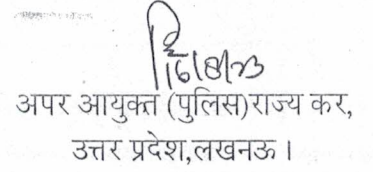 16/8/23
अपर आयुक्त (पुलिस)राज्य कर,
उत्तर प्रदेश,लखनऊ।